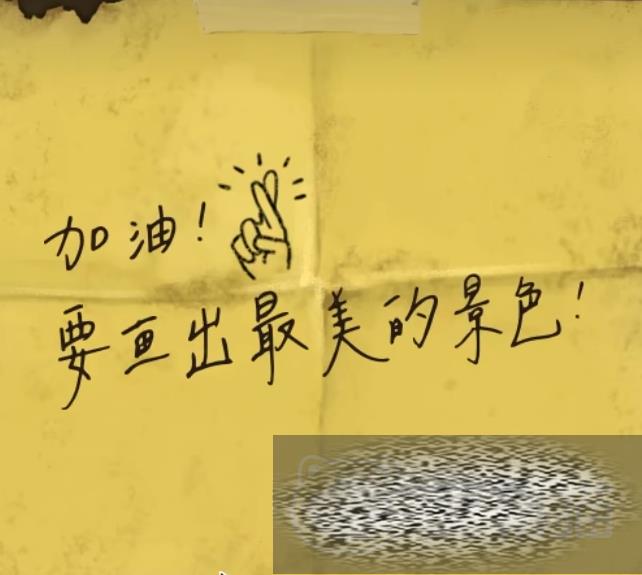 加油!
要画出最美的景色!